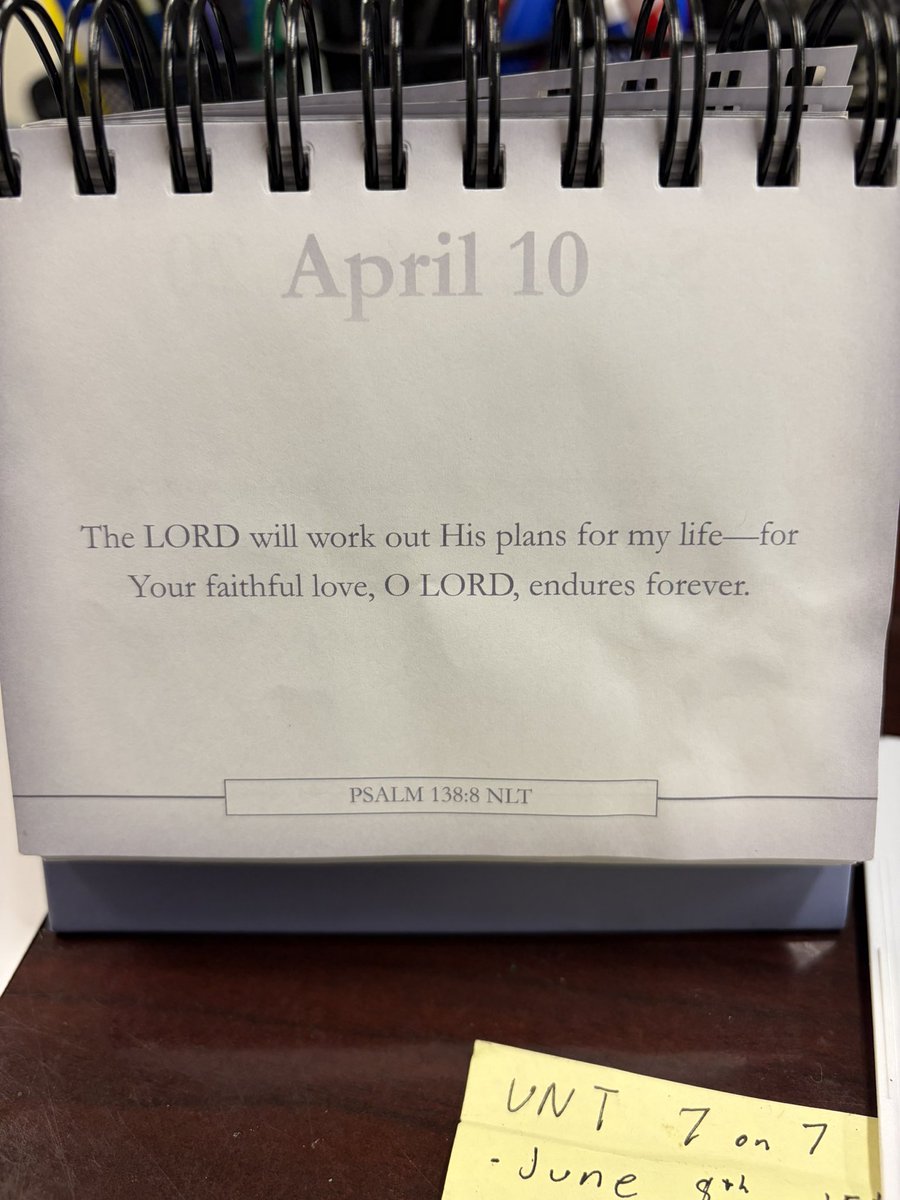 April 10
The LORD will work out His plans for my life—for
Your faithful love, O LORD, endures forever.
PSALM 138:8 NLT
UNT 7 on 7
- June 8th